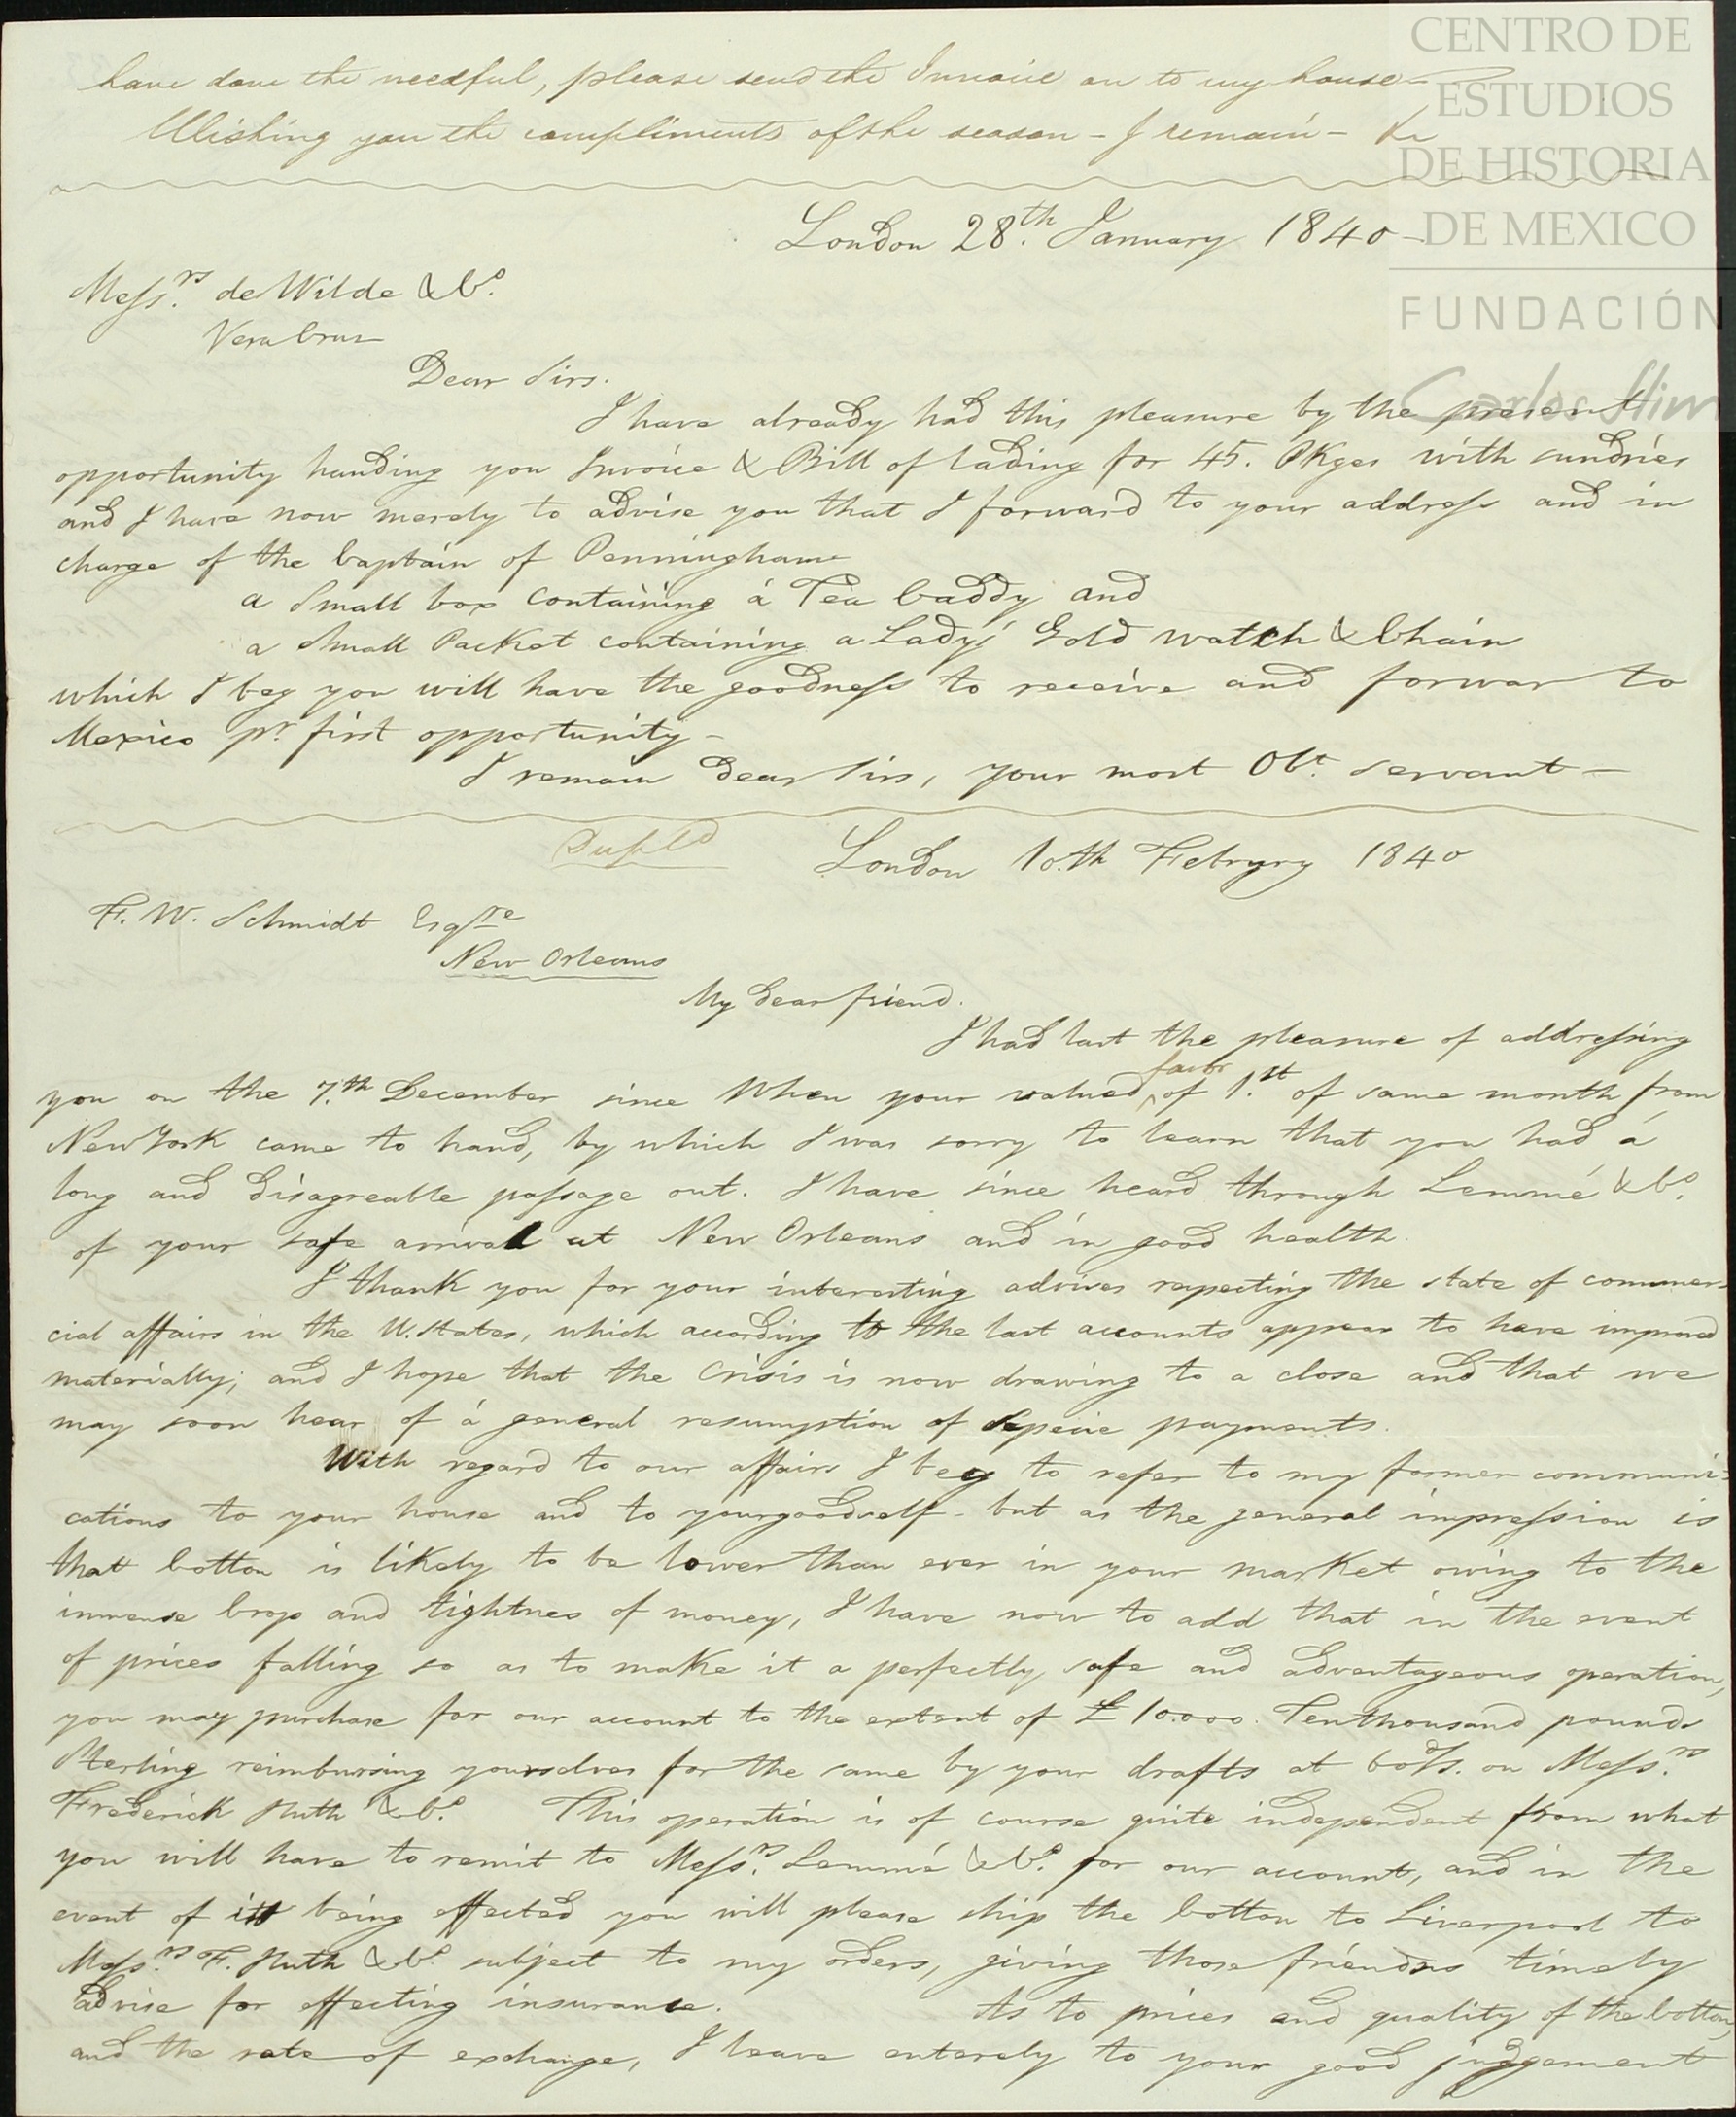 CENTRO DE
ESTUDIOS
DE HISTORIA
DE MEXICO
FUNDACIÓN
Carlos Slim
have done the needful, please send the Invoice on to my house -
Wishing you the compliments of the season - I remain - &c
London 28.th January 1840 -
Mess.rs de Wilde & Co.
Vera Cruz
Dear Sirs.
I have already had this pleasure by the present
opportunity handing you Invoice & Bill of lading for 45. PKges with sundries
and I have now merely to advise you that I forward to your address and in
charge of the Captain of Penningham
a Small box containing á Tea Caddy and
a small Packet containing a Lady's Gold watch & Chain
which I beg you will have the goodness to receive and forwar to
Mexico pr. first opportunity -
I remain Dear Sirs, your most Obt. servant -
Dupld
London 10.th Februry 1840
F. W. Schmidt Esqre
New Orleans
My Dear friend.
I had last the pleasure of addressing
you on the 7.th December since When your valued favor of 1.st of same month from
New York came to hand, by which I was sorry to learn that you had á
long and disagreable passage out. I have since heard through Lemmé & Co.
of your safe arrival at New Orleans and in good health.
I thank you for your interesting advices respecting the state of commer-
cial affairs in the U. States, which according to the last accounts appear to have improved
materially; and I hope that the Crisis is now drawing to a close and that we
may soon hear of á general resumption of Specie payments.
With regard to our affairs I beg to refer to my former communi-
cations to your house and to yourgoodself - but as the general impression is
that Cotton is likely to be lower than ever in your market owing to the
immense Crop and tightnes of money, I have now to add that in the event
of prices falling so as to make it a perfectly safe and adventageous operation,
you may purchase for our account to the extent of £ 10.000. Tenthousand pounds
Sterling reimbursing yourselves for the same by your drafts at 60 d/s. on Mess.rs
Frederick Huth & Co. This operation is of course quite independent from what
you will have to remit to Mess.rs Lemmé & Co. for our account, and in the
event of it being effected you will please ship the Cotton to Liverpool to
Mess.rs F. Huth & Co. subject to my orders, giving those friends timely
advise for effecting insurance. As to prices and quality of the Cotton,
and the rate of exchange, I leave enterely to your good judgement